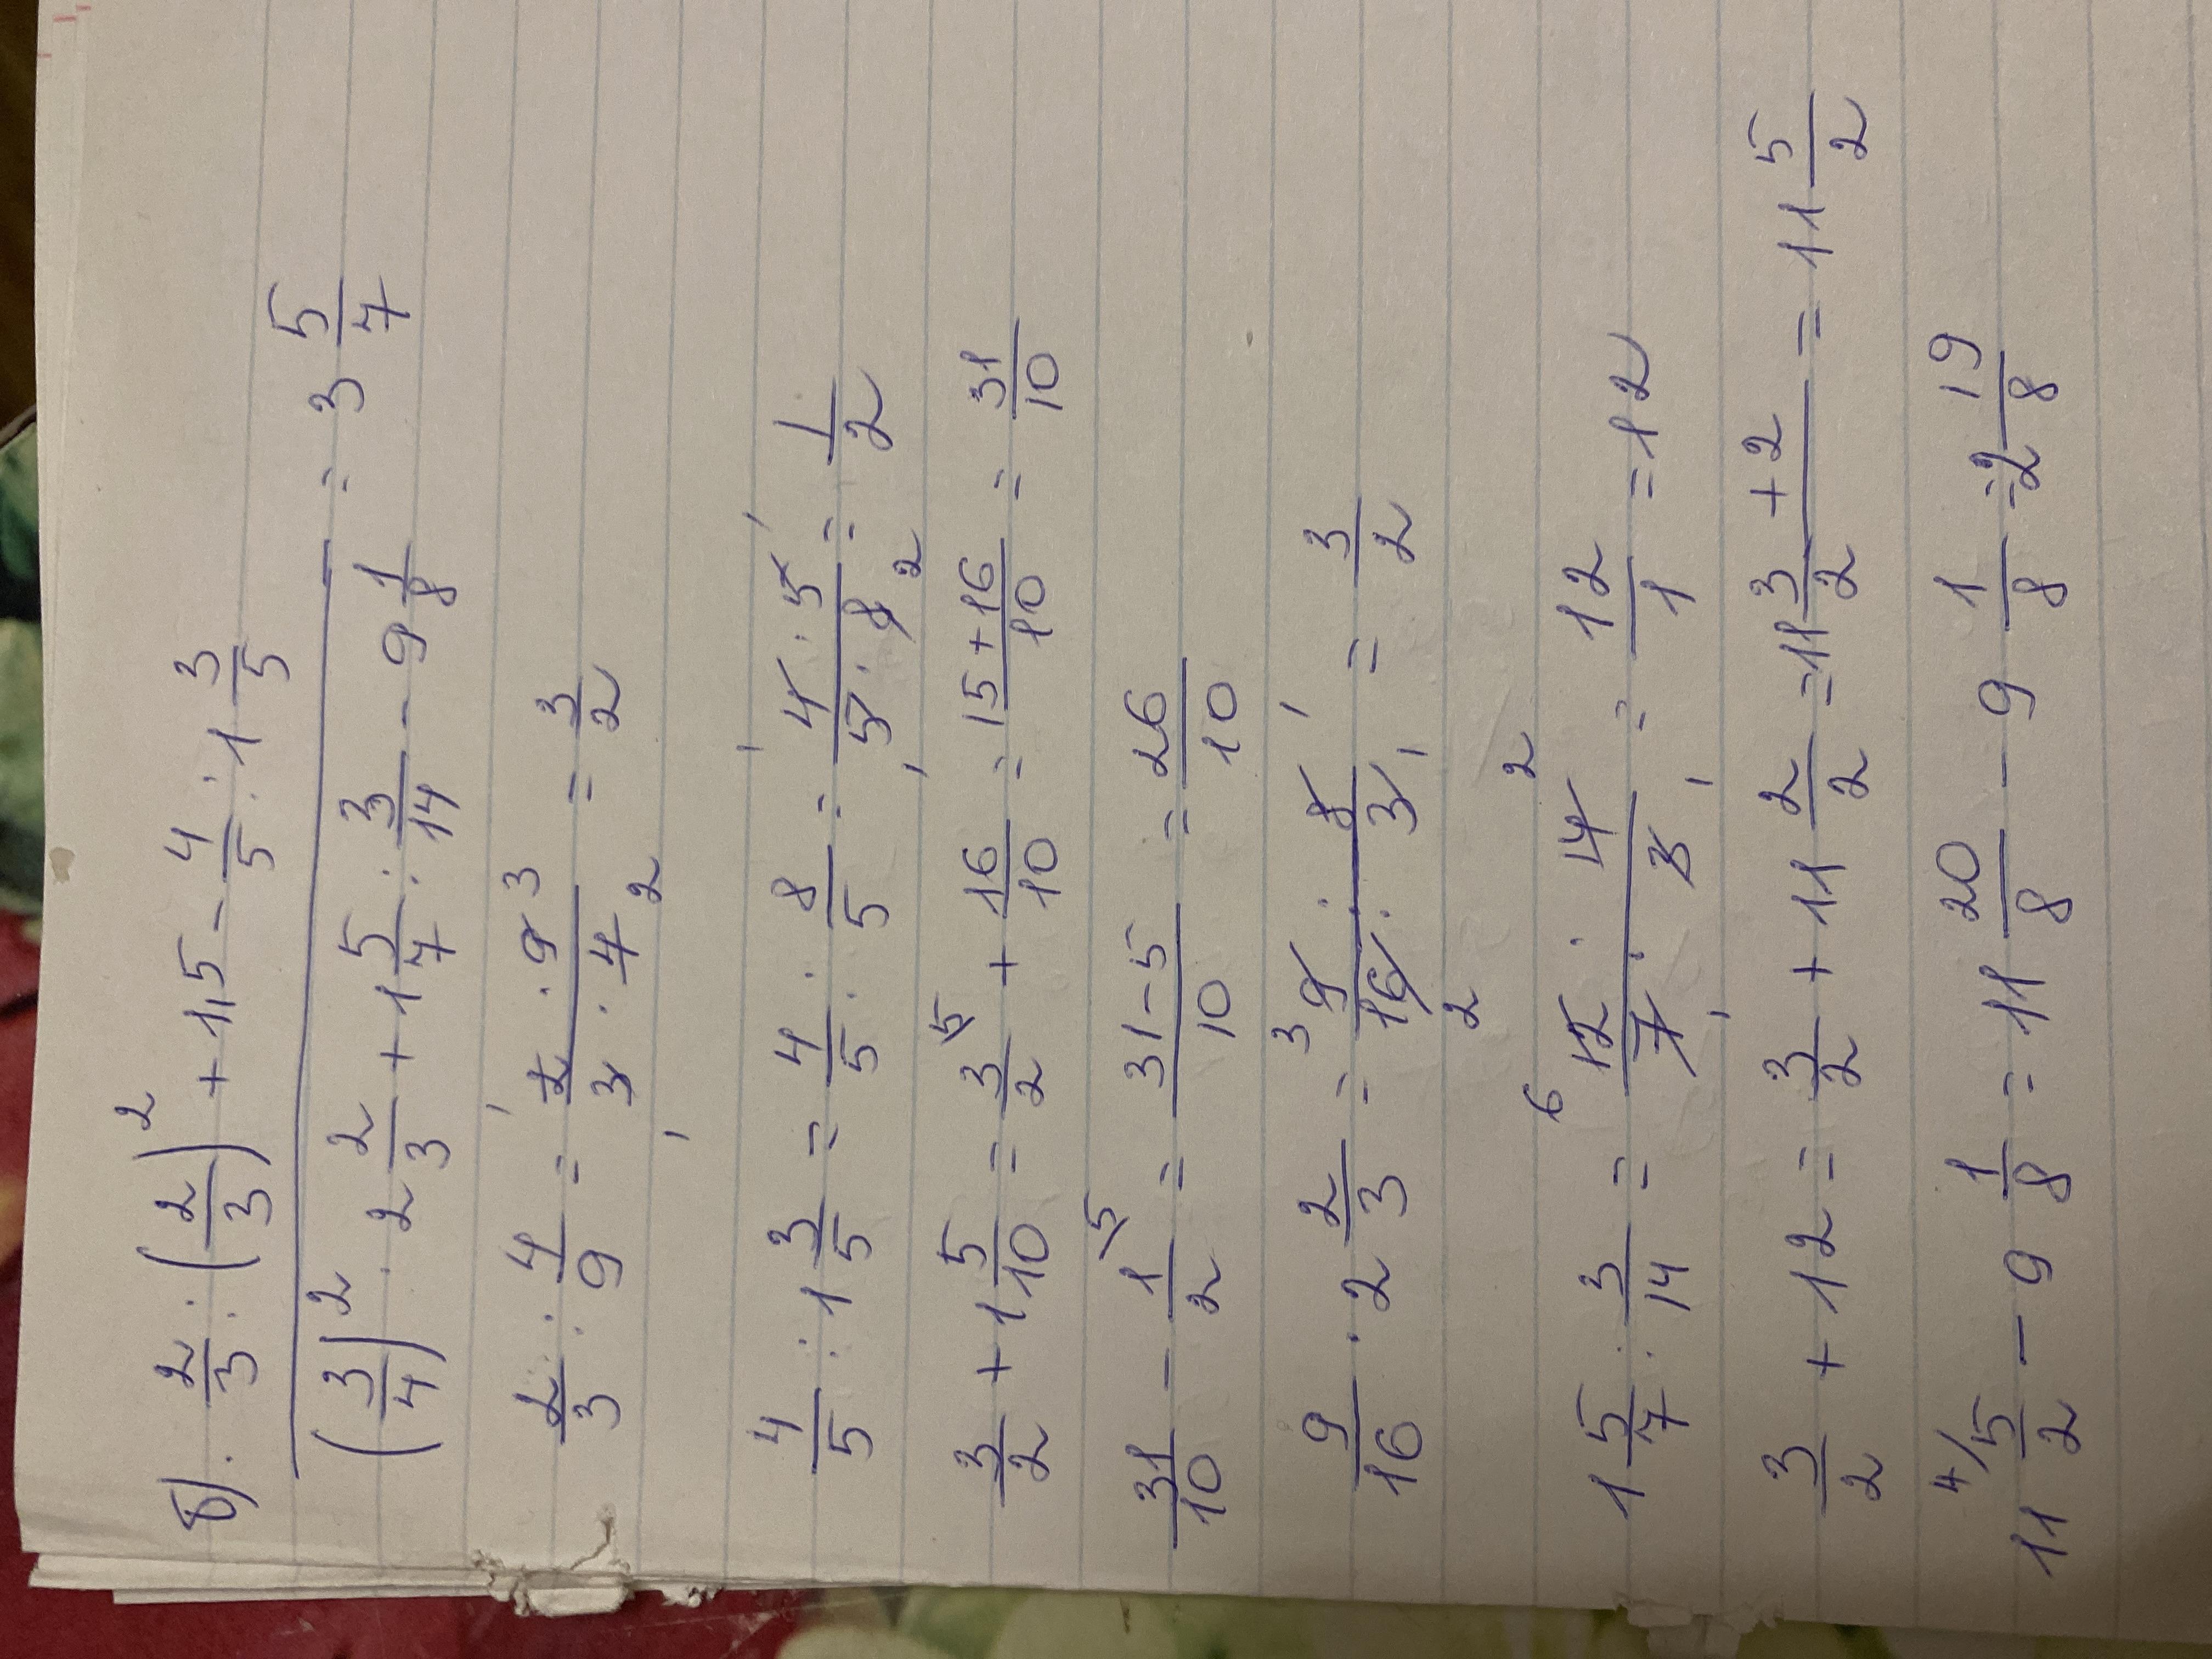 б). 2/3 : (2/3)² + 1,5 - 4/5 : 1 3/5
(3/4)² · 2 2/3 + 1 5/7 : 3/14 - 9 1/8 = 3 5/7
2/3 : 4/9 = 2 · 9 3 / 3 · 4 2 = 3/2
4/5 : 1 3/5 = 4/5 : 8/5 = 4 · 5 / 5 · 8 2 = 1/2
3/2 + 1 5/10 = 3/2 \5 + 16/10 = 15 + 16 / 10 = 31/10
31/10 - 1/2 \5 = 31 - 5 / 10 = 26/10
9/16 · 2 2/3 = 3 9 · 8 1 / 16 2 · 3 1 = 3/2
1 5/7 : 3/14 = 6 12 · 14 2 / 7 1 · 3 1 = 12/1 = 12
3/2 + 12 = 3/2 + 11 2/2 = 11 3 + 2 / 2 = 11 5/2
11 4/ 5/2 - 9 1/8 = 11 20/8 - 9 1/8 = 2 19/8